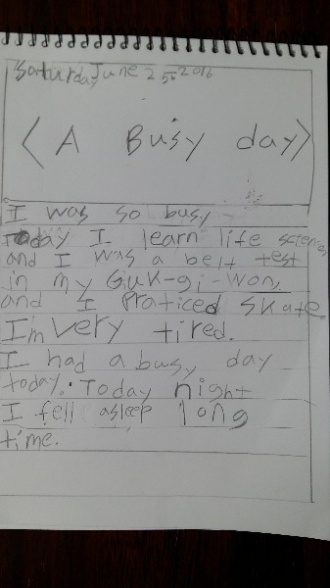 Saturday June 25. 2016
< A Busy day>
I was so busy
Today I learn life science
and I was a belt test
in my Guk-gi-won.
and I Praticed skate.
I'm very tired.
I had a busy day
today. Today night
I fell asleep long
time.